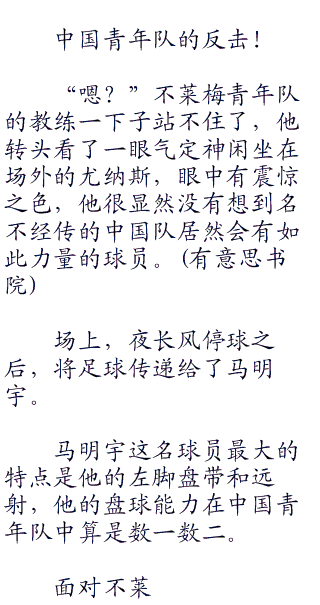 中国青年队的反击！
“嗯？”不莱梅青年队
的教练一下子站不住了，他
转头看了一眼气定神闲坐在
场外的尤纳斯，眼中有震惊
之色，他很显然没有想到名
不经传的中国队居然会有如
此力量的球员。(有意思书
院)
场上，夜长风停球之
后，将足球传递给了马明
宇。
马明宇这名球员最大的
特点是他的左脚盘带和远
射，他的盘球能力在中国青
年队中算是数一数二。
面对不莱